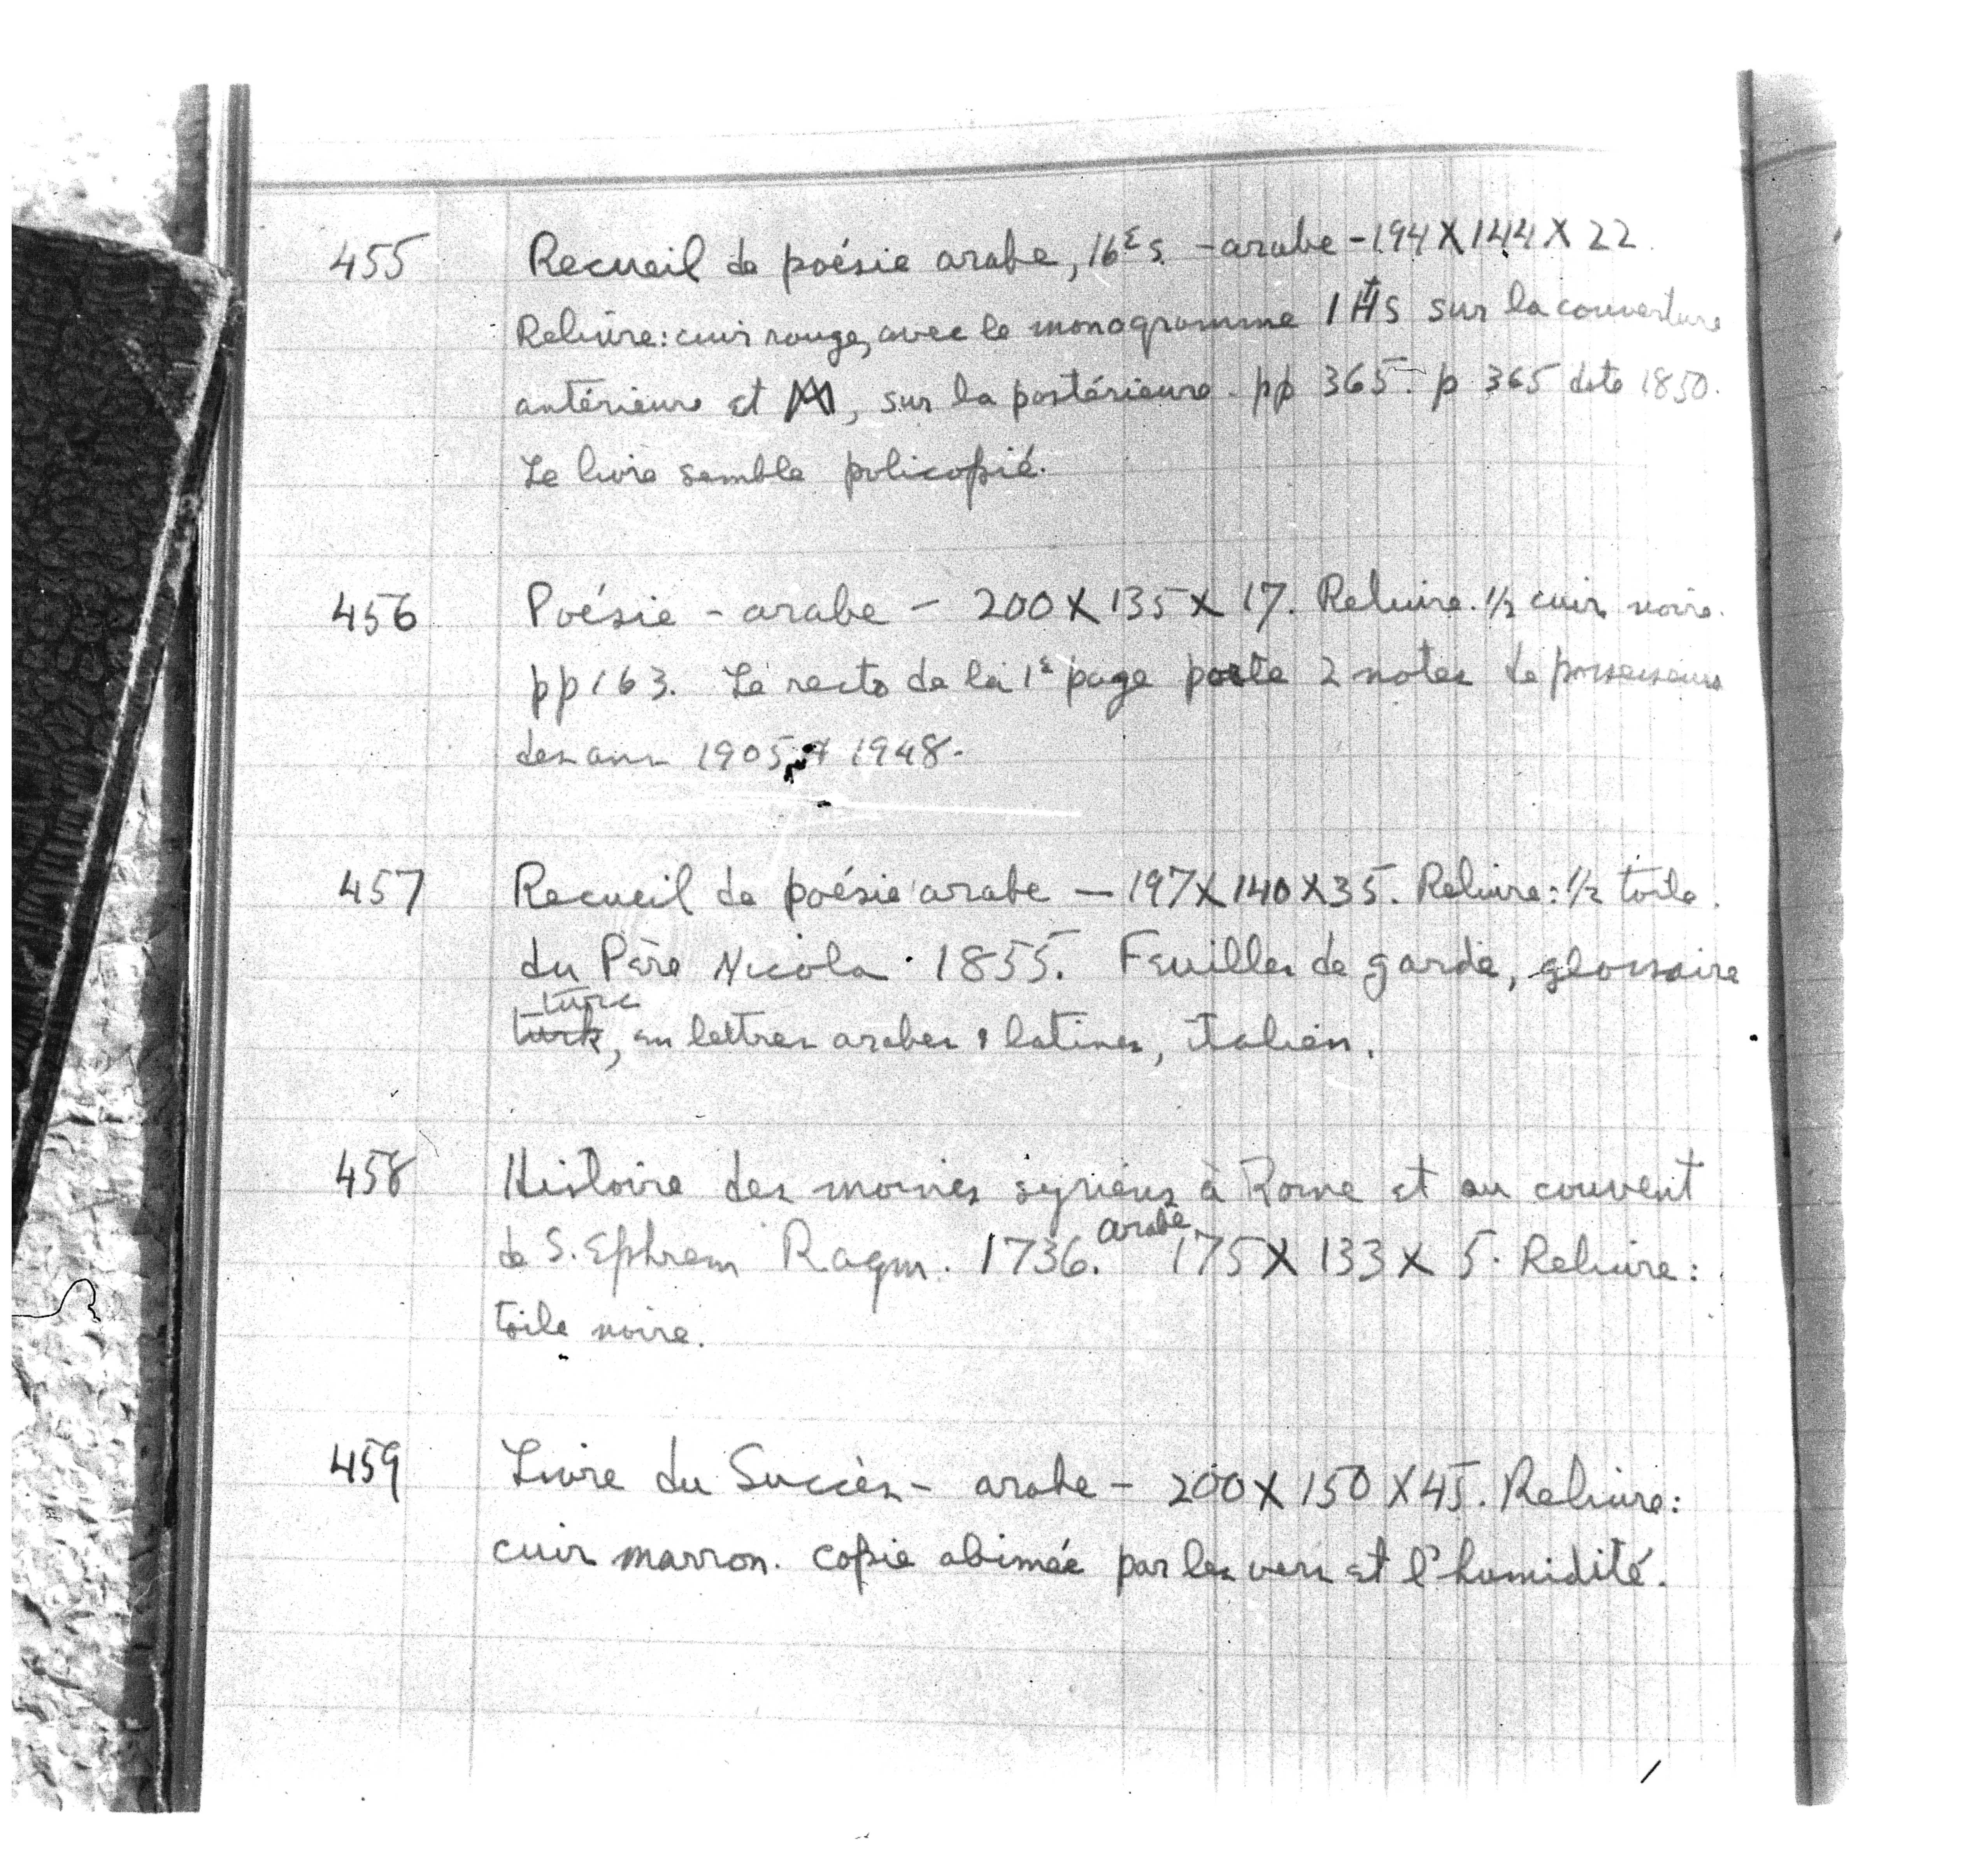 455 Recueil de poésie arabe, 16e s. - arabe - 194 X 144 X 22.
Reliure: cuir rouge, avec le monogramme IHS sur la couverture
antérieure et , sur la postérieure. pp 365. p 365 date 1850.
Le livre semble policopié.
456 Poésie - arabe - 200 X 135 X 17. Reliure. 1/2 cuir noire.
pp 163. Le recto de la 1e page porte 2 notes de possesseurs
des ann 1905 et 1948.
457 Recueil de poésie arabe — 197 X 140 X 35. Reliure: 1/2 toile.
du Père Nicola. 1855. Feuilles de garde, glossaire
turc
turk, en lettres arabes & latines, italien.
458 Histoire des moines syriens à Rome et au couvent
de S. Ephrem Ragm. 1736. arabe. 175 X 133 X 5. Reliure:
toile noire.
459 Livre du Succès - arabe - 200 X 150 X 45. Reliure:
cuir marron. copie abimée par les vers et l'humidité.